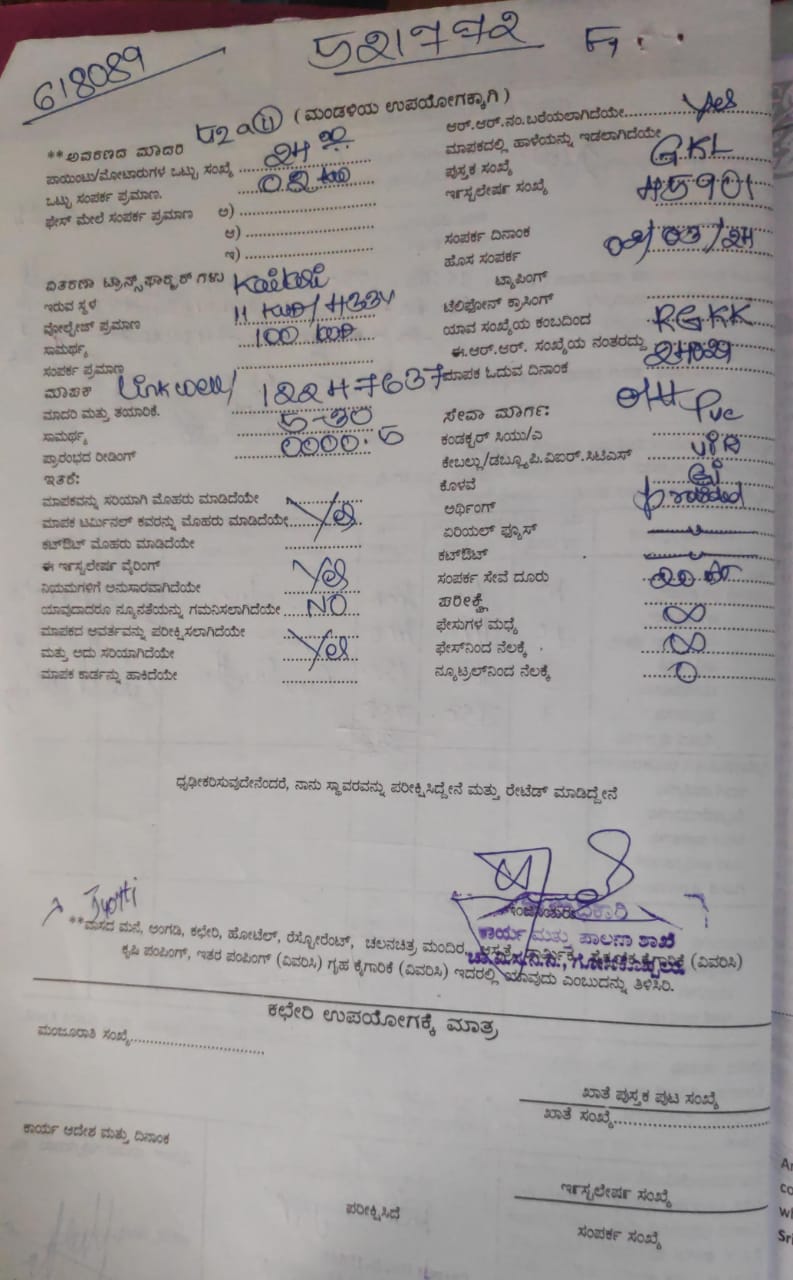 618089
521772
(ಮಂಡಳಿಯ ಉಪಯೋಗಕ್ಕಾಗಿ)
**ಅವಕಣದ ಮಾದರಿ
ಪಾಯಿಂಟು/ಮೋಟಾರುಗಳ ಒಟ್ಟು ಸಂಖ್ಯೆ
ಒಟ್ಟು ಸಂಪರ್ಕ ಪ್ರಮಾಣ.
ಫೇಸ್ ಮೇಲೆ ಸಂಪರ್ಕ ಪ್ರಮಾಣ ಅ)
ಆ)
ಇ)
ವಿತರಣಾ ಟ್ರಾನ್ಸ್‌ಫಾರ್ಮರ್‌ಗಳು
ಇರುವ ಸ್ಥಳ
ವೋಲ್ಟೇಜ್ ಪ್ರಮಾಣ
ಸಾಮರ್ಥ್ಯ 100
ಸಂಪರ್ಕ ಪ್ರಮಾಣ
ಮಾಪಕ Linkwell/ 12247637
ಮಾದರಿ ಮತ್ತು ತಯಾರಿಕೆ.
ಸಾಮರ್ಥ್ಯ 5-30
ಪ್ರಾರಂಭದ ರೀಡಿಂಗ್ 0000.5
ಇತರೆ:
ಮಾಪಕವನ್ನು ಸರಿಯಾಗಿ ಮೊಹರು ಮಾಡಿದೆಯೇ
ಮಾಪಕ ಟರ್ಮಿನಲ್ ಕವರನ್ನು ಮೊಹರು ಮಾಡಿದೆಯೇ Yes
ಕಟ್‌ಔಟ್ ಮೊಹರು ಮಾಡಿದೆಯೇ
ಈ ಇನ್ಸ್ಟಲೇಷನ್ ವೈರಿಂಗ್ Yes
ನಿಯಮಗಳಿಗೆ ಅನುಸಾರವಾಗಿದೆಯೇ
ಯಾವುದಾದರೂ ನ್ಯೂನತೆಯನ್ನು ಗಮನಿಸಲಾಗಿದೆಯೇ NO
ಮಾಪಕದ ಆವರ್ತವನ್ನು ಪರೀಕ್ಷಿಸಲಾಗಿದೆಯೇ
ಮತ್ತು ಅದು ಸರಿಯಾಗಿದೆಯೇ Yes
ಮಾಪಕ ಕಾರ್ಡನ್ನು ಹಾಕಿದೆಯೇ
ಆರ್.ಆರ್.ನಂ.ಬರೆಯಲಾಗಿದೆಯೇ Yes
ಮಾಪಕದಲ್ಲಿ ಹಾಳೆಯನ್ನು ಇಡಲಾಗಿದೆಯೇ
ಪುಸ್ತಕ ಸಂಖ್ಯೆ GKL
ಇನ್ಸ್ಟಲೇಷನ್ ಸಂಖ್ಯೆ 45901
ಸಂಪರ್ಕ ದಿನಾಂಕ
ಹೊಸ ಸಂಪರ್ಕ
ಟ್ಯಾಪಿಂಗ್
ಟೆಲಿಫೋನ್ ಕ್ರಾಸಿಂಗ್
ಯಾವ ಸಂಖ್ಯೆಯ ಕಂಬದಿಂದ RGKK
ಈ.ಆರ್.ಆರ್. ಸಂಖ್ಯೆಯ ನಂತರದ್ದು
ಮಾಪಕ ಓದುವ ದಿನಾಂಕ
ಸೇವಾ ಮಾರ್ಗ: OH Pvc
ಕಂಡಕ್ಟರ್ ಸಿಯು/ಎ
ಕೇಬಲ್ಲು/ಡಬ್ಲ್ಯೂಪಿ.ವಿಐಆರ್.ಸಿಟಿಎಸ್
ಕೊಳವೆ GI
ಅರ್ಥಿಂಗ್ Provided
ಏರಿಯಲ್ ಫ್ಯೂಸ್
ಕಟ್‌ಔಟ್
ಸಂಪರ್ಕ ಸೇವೆ ದೂರು
ಪರೀಕ್ಷೆ
ಫೇಸುಗಳ ಮಧ್ಯೆ ∞
ಫೇಸ್‌ನಿಂದ ನೆಲಕ್ಕೆ ∞
ನ್ಯೂಟ್ರಲ್‌ನಿಂದ ನೆಲಕ್ಕೆ 0
ಧೃಢೀಕರಿಸುವುದೇನೆಂದರೆ, ನಾನು ಸ್ಥಾವರವನ್ನು ಪರೀಕ್ಷಿಸಿದ್ದೇನೆ ಮತ್ತು ರೇಟೆಡ್ ಮಾಡಿದ್ದೇನೆ
Jyothi
ಕಾರ್ಯ ಮತ್ತು ಪಾಲನಾ ಶಾಖೆ
**ವಾಸದ ಮನೆ, ಅಂಗಡಿ, ಕಛೇರಿ, ಹೋಟೆಲ್, ರೆಸ್ಟೋರೆಂಟ್, ಚಲನಚಿತ್ರ ಮಂದಿರ, ಆಸ್ಪತ್ರೆ, ಕೈಗಾರಿಕೆ (ವಿವರಿಸಿ)
ಕೃಷಿ ಪಂಪಿಂಗ್, ಇತರ ಪಂಪಿಂಗ್ (ವಿವರಿಸಿ) ಗೃಹ ಕೈಗಾರಿಕೆ (ವಿವರಿಸಿ) ಇದರಲ್ಲಿ ಯಾವುದು ಎಂಬುದನ್ನು ತಿಳಿಸಿರಿ.
ಕಛೇರಿ ಉಪಯೋಗಕ್ಕೆ ಮಾತ್ರ
ಮಂಜೂರಾತಿ ಸಂಖ್ಯೆ
ಖಾತೆ ಪುಸ್ತಕ ಪುಟ ಸಂಖ್ಯೆ
ಖಾತೆ ಸಂಖ್ಯೆ
ಕಾರ್ಯ ಆದೇಶ ಮತ್ತು ದಿನಾಂಕ
ಇನ್ಸ್ಟಲೇಷನ್ ಸಂಖ್ಯೆ
ಪರೀಕ್ಷಿಸಿದೆ
ಸಂಪರ್ಕ ಸಂಖ್ಯೆ